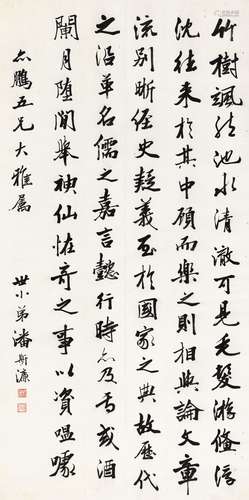 竹樹颯然池水清澈可見毛髮游儵浮
沈往來於其中顧而樂之則相與論文章
流別晰經史疑義至於國家之典故歷代
之沿革名儒之嘉言懿行時亦及焉或酒
闌月墮間舉神仙怪奇之事以資嗢噱
志鵬五兄大雅屬
世小弟潘斯濂